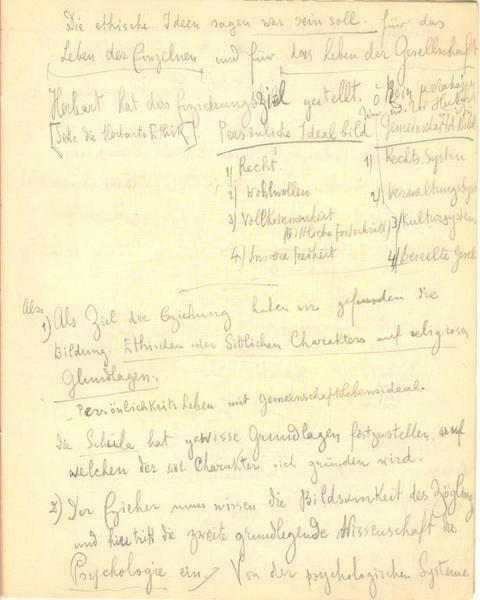 Die ethische Ideen sagen was sein soll. für das
Leben der Einzelnen und für das Leben der Gesellschaft
Herbart hat das Erziehungsziel gestellt.
[Siehe die Herbarts Ethik] Persönliche Idealbild Gemeinschafts
1) Recht. 1) Rechts System
2) Wohlwollen 2) Verwaltungssys
3) Vollkommenheit 3) Kultursystem
(sittliche Fortschritt)
4) Innere Freiheit 4) beseelte Gesel
Also
1) Als Ziel der Erziehung haben wir gefunden die
Bildung. Ethischen oder Sittlichen Charakters auf religiösen
Glundlagen.
Persönlichkeits Leben mit Gemeinschaftlebensideal.
Die Schule hat gewisse Grundlagen festzustellen, auf
welchen der sittl. Charakter sich gründen wird.
2) Der Ezieher muss wissen die Bildsamkeit des Zögling
und hier tritt die zweite grundlegende Wissenschaft die
Psychologie ein. Von der psychologischen Systeme